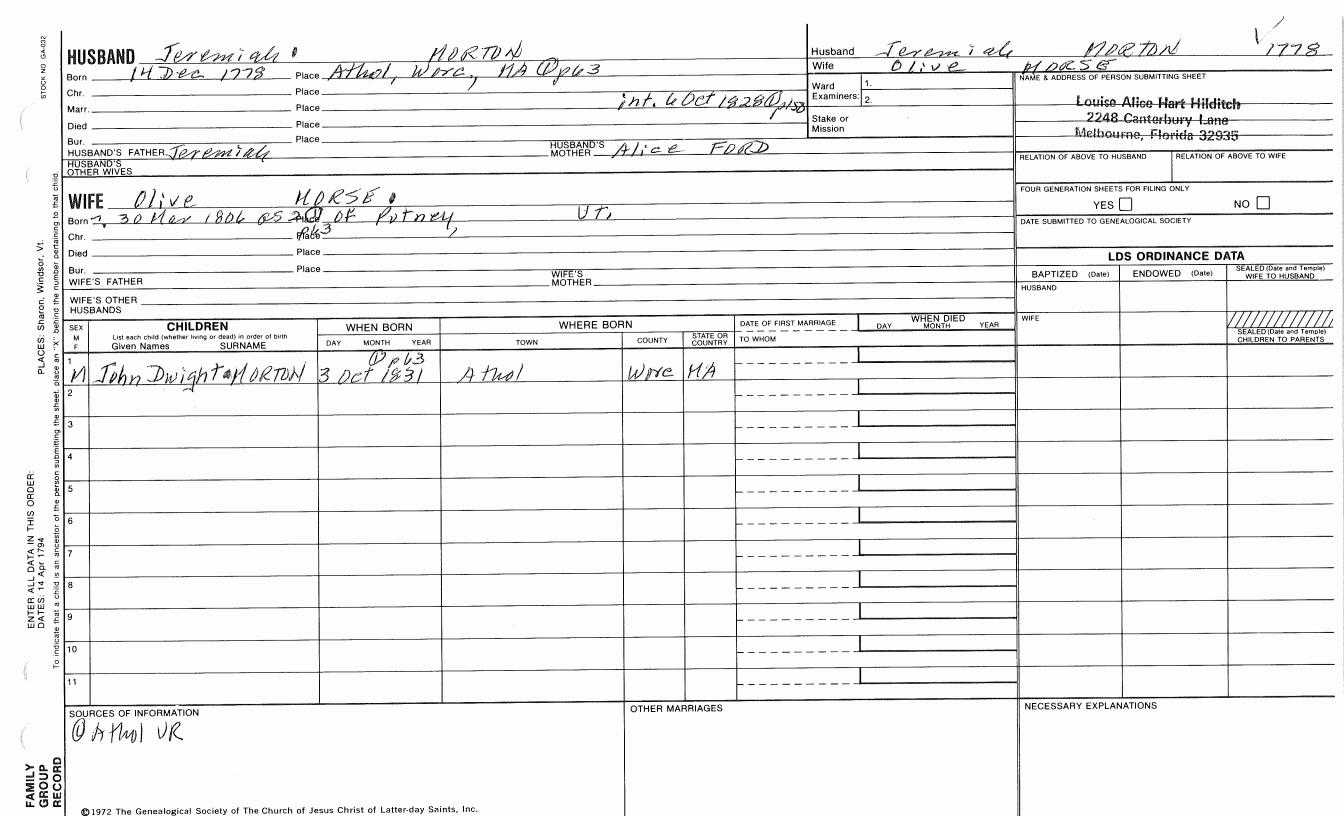 STOCK NO. GA-032
HUSBAND Jeremiah MORTON
Born 14 Dec 1778 Place Athol, Worc, MA ① p63
Chr. Place
Marr. Place int. 6 Oct 1828 ① p150
Died Place
Bur. Place
HUSBAND'S FATHER Jeremiah HUSBAND'S MOTHER Alice FORD
HUSBAND'S OTHER WIVES
Husband Jeremiah MORTON 1778
Wife Olive MORSE
Ward Examiners: 1. 2.
Stake or Mission
NAME & ADDRESS OF PERSON SUBMITTING SHEET
Louise Alice Hart Hilditch
2248 Canterbury Lane
Melbourne, Florida 32935
RELATION OF ABOVE TO HUSBAND RELATION OF ABOVE TO WIFE
FOUR GENERATION SHEETS FOR FILING ONLY
YES NO
DATE SUBMITTED TO GENEALOGICAL SOCIETY
WIFE Olive MORSE
Born 30 Mar 1806 Place of Putney, Vt.
Chr. Place p63
Died Place
Bur. Place
WIFE'S FATHER WIFE'S MOTHER
WIFE'S OTHER HUSBANDS
LDS ORDINANCE DATA
BAPTIZED (Date) ENDOWED (Date) SEALED (Date and Temple) WIFE TO HUSBAND
HUSBAND
WIFE
SEALED (Date and Temple) CHILDREN TO PARENTS
SEX M F CHILDREN WHEN BORN WHERE BORN DATE OF FIRST MARRIAGE WHEN DIED
List each child (whether living or dead) in order of birth
Given Names SURNAME DAY MONTH YEAR TOWN COUNTY STATE OR COUNTRY TO WHOM DAY MONTH YEAR
① p63
1 M John Dwight MORTON 3 Oct 1831 Athol Worc MA
2
3
4
5
6
7
8
9
10
11
SOURCES OF INFORMATION OTHER MARRIAGES NECESSARY EXPLANATIONS
① Athol VR
©1972 The Genealogical Society of The Church of Jesus Christ of Latter-day Saints, Inc.
FAMILY
GROUP
RECORD
ENTER ALL DATA IN THIS ORDER:
DATES: 14 Apr 1794 PLACES: Sharon, Windsor, Vt.
To indicate that a child is an ancestor of the person submitting the sheet, place an "X" behind the number pertaining to that child.